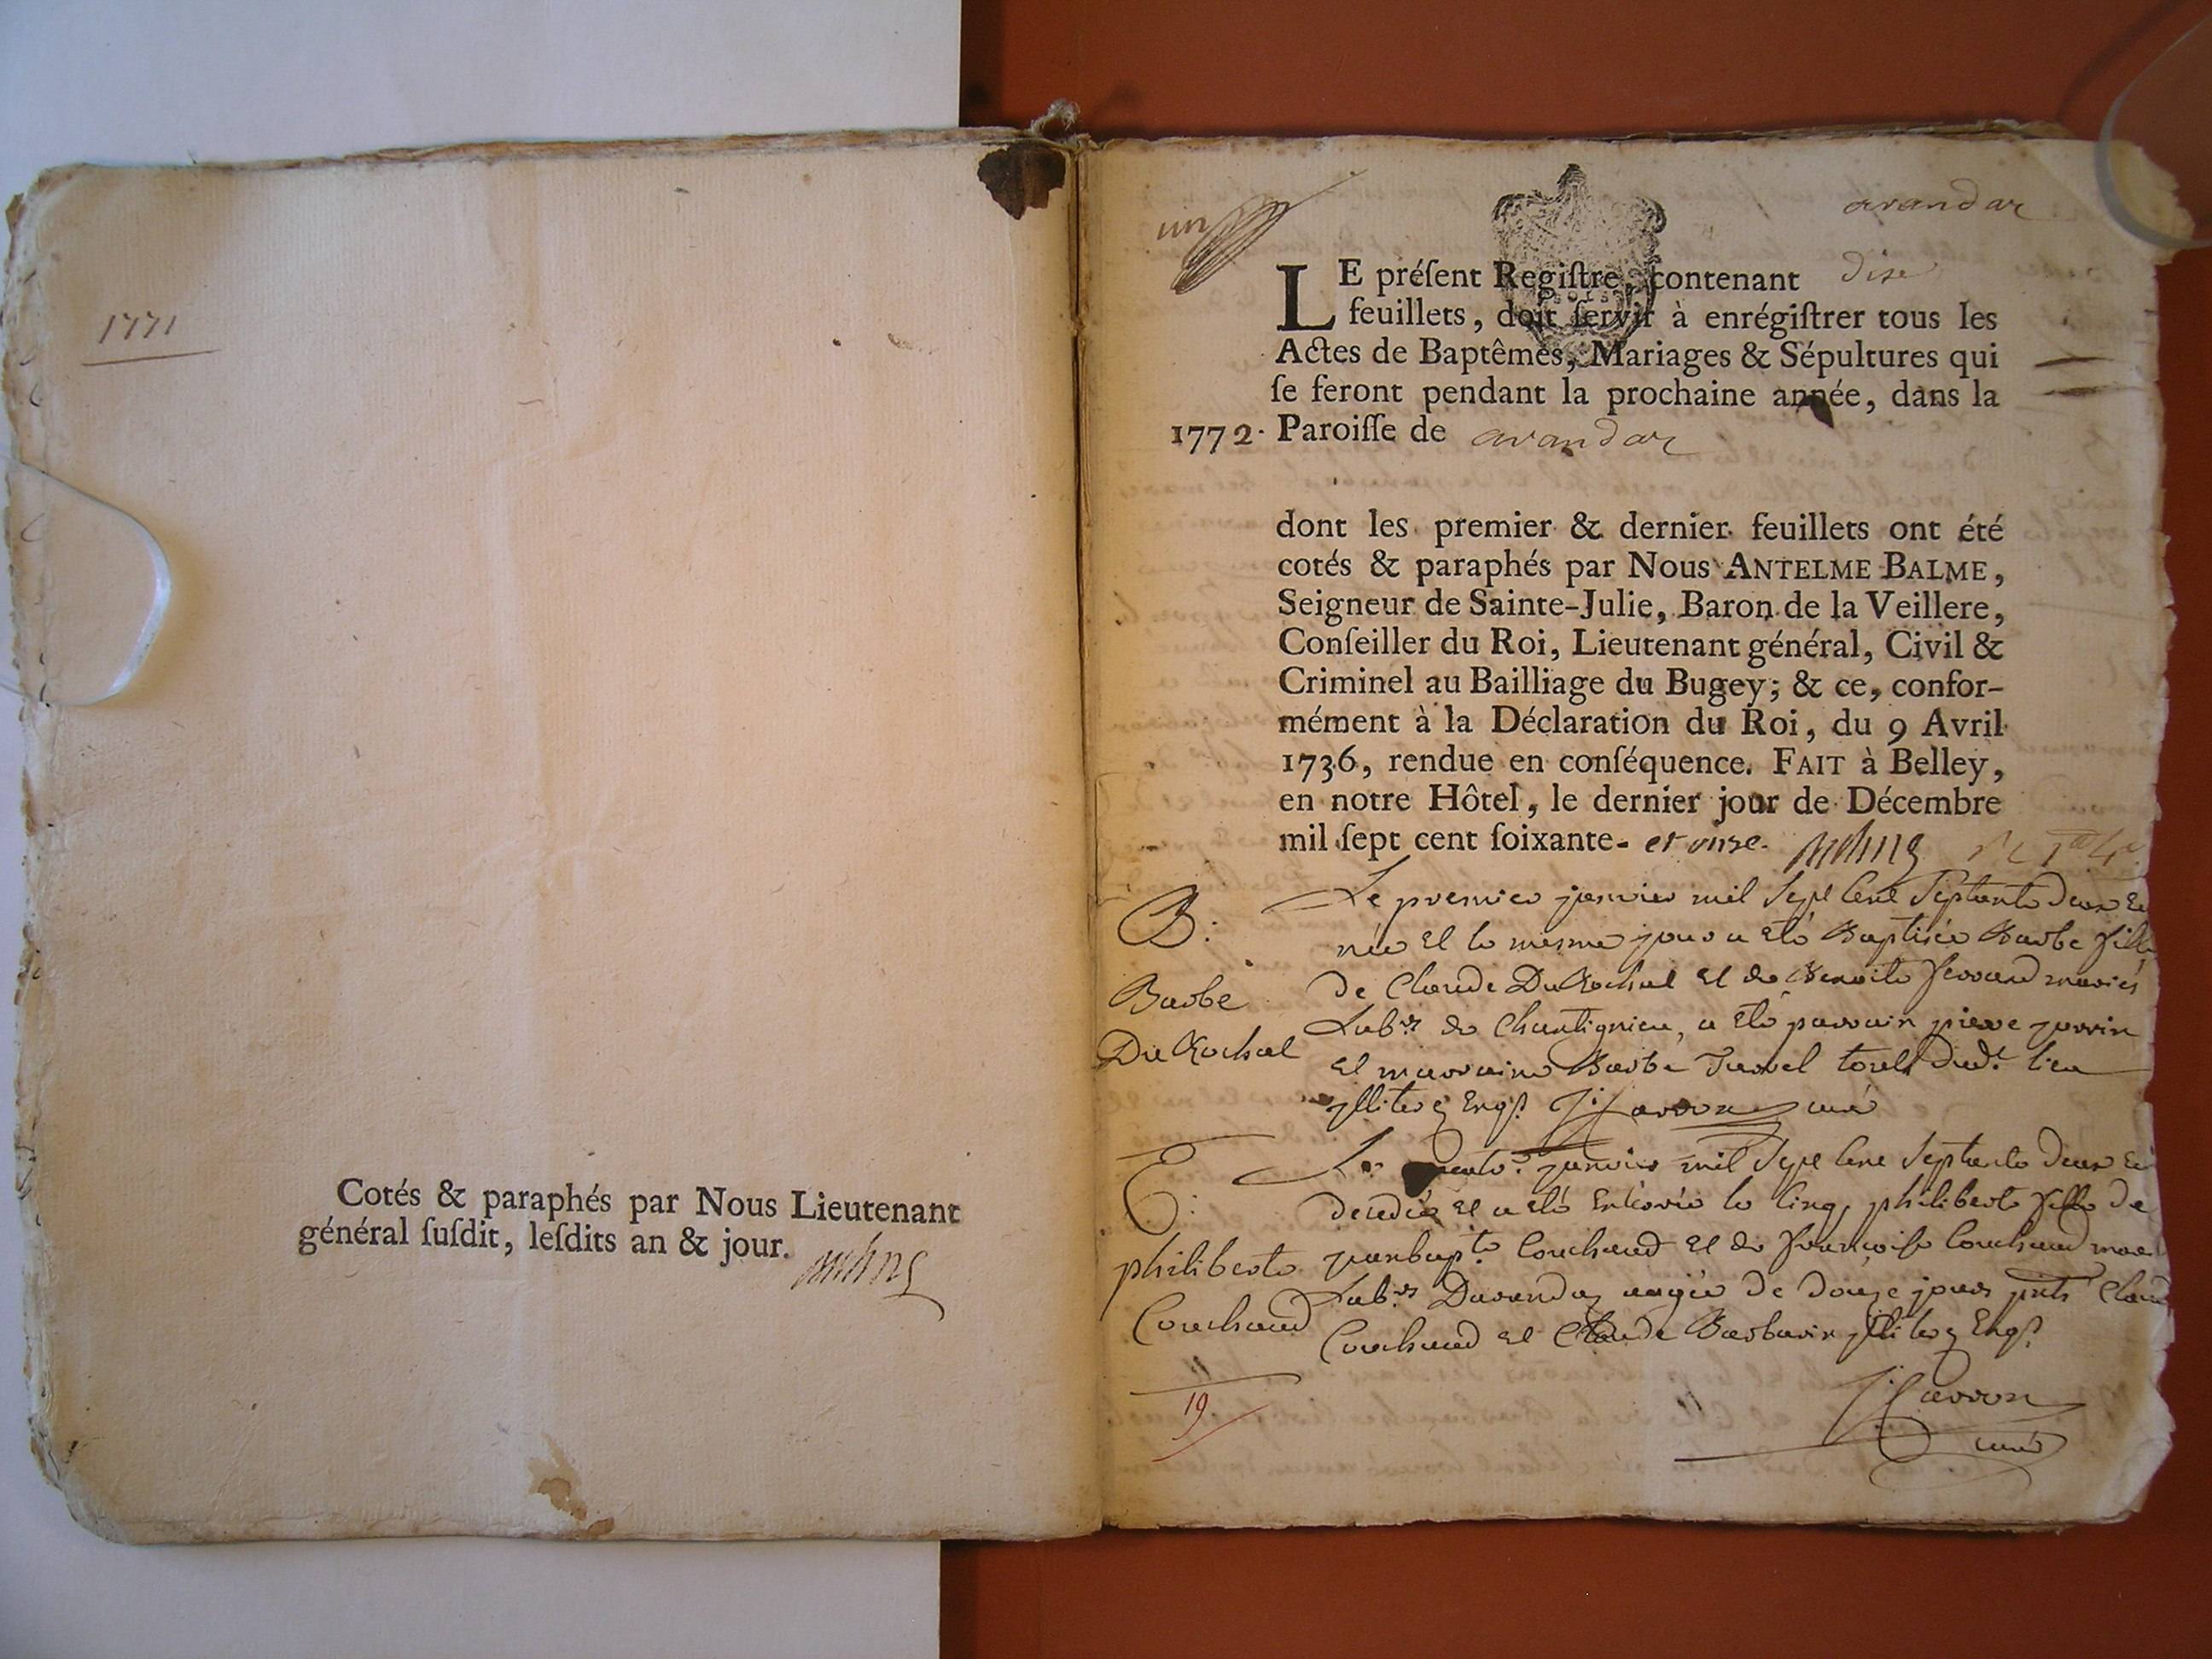 1771
Cotés & paraphés par Nous Lieutenant
général ſuſdit, leſdits an & jour.
un
arandaz
LE préſent Regiſtre, contenant dixe
feuillets, doit ſervir à enrégiſtrer tous les
Actes de Baptêmes, Mariages & Sépultures qui
ſe feront pendant la prochaine année, dans la
1772. Paroiſſe de arandaz
dont les premier & dernier feuillets ont été
cotés & paraphés par Nous ANTELME BALME,
Seigneur de Sainte-Julie, Baron de la Veillere,
Conſeiller du Roi, Lieutenant général, Civil &
Criminel au Bailliage du Bugey; & ce, confor-
mément à la Déclaration du Roi, du 9 Avril
1736, rendue en conſéquence. FAIT à Belley,
en notre Hôtel, le dernier jour de Décembre
mil ſept cent ſoixante- et onze.
B:
Barbe
Du Rochat
Le premier janvier mil sept cent septante deux est
née et le mesme jour a eté Baptisée Barbe fille
de Claude Du Rochat et de Benoite ferrand mariés
Labrs de Chantignieu, a eté parrain pierre
et marraine Barbe tous dudt lieu
illiterés Enqs Carron curé
E:
philiberte
Couchaud
Le janvier mil sept cent septante deux est
decedée et a eté Enterrée le cinq, philiberte fille de
janbapte Couchaud et de françoise Couchaud mar
Labrs Darandaz aagée de douze jours pnts Claud
Couchaud et Claude Barbarin illiterés Enqs
Carron
curé
19